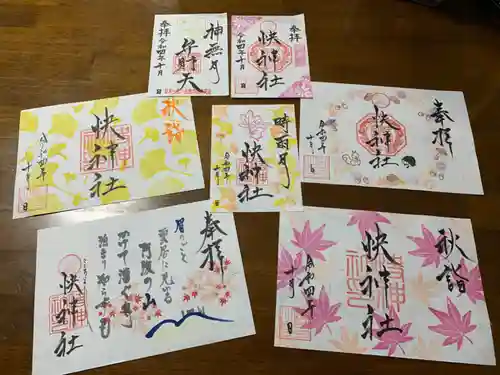 奉拝
令和四年十月
弁財天
神無月
奉拝
令和四年十月
快神社
秋詣
快神社
令和四年
十月
日
時雨月
快神社
令和四年
十月
日
奉拝
快神社
令和四年
十月
日
奉拝
眉のごと
雲居に見ゆる
阿波の山
かけて漕ぐ舟
泊まり知らずも
快神社
秋詣
快神社
令和四年
十月
日